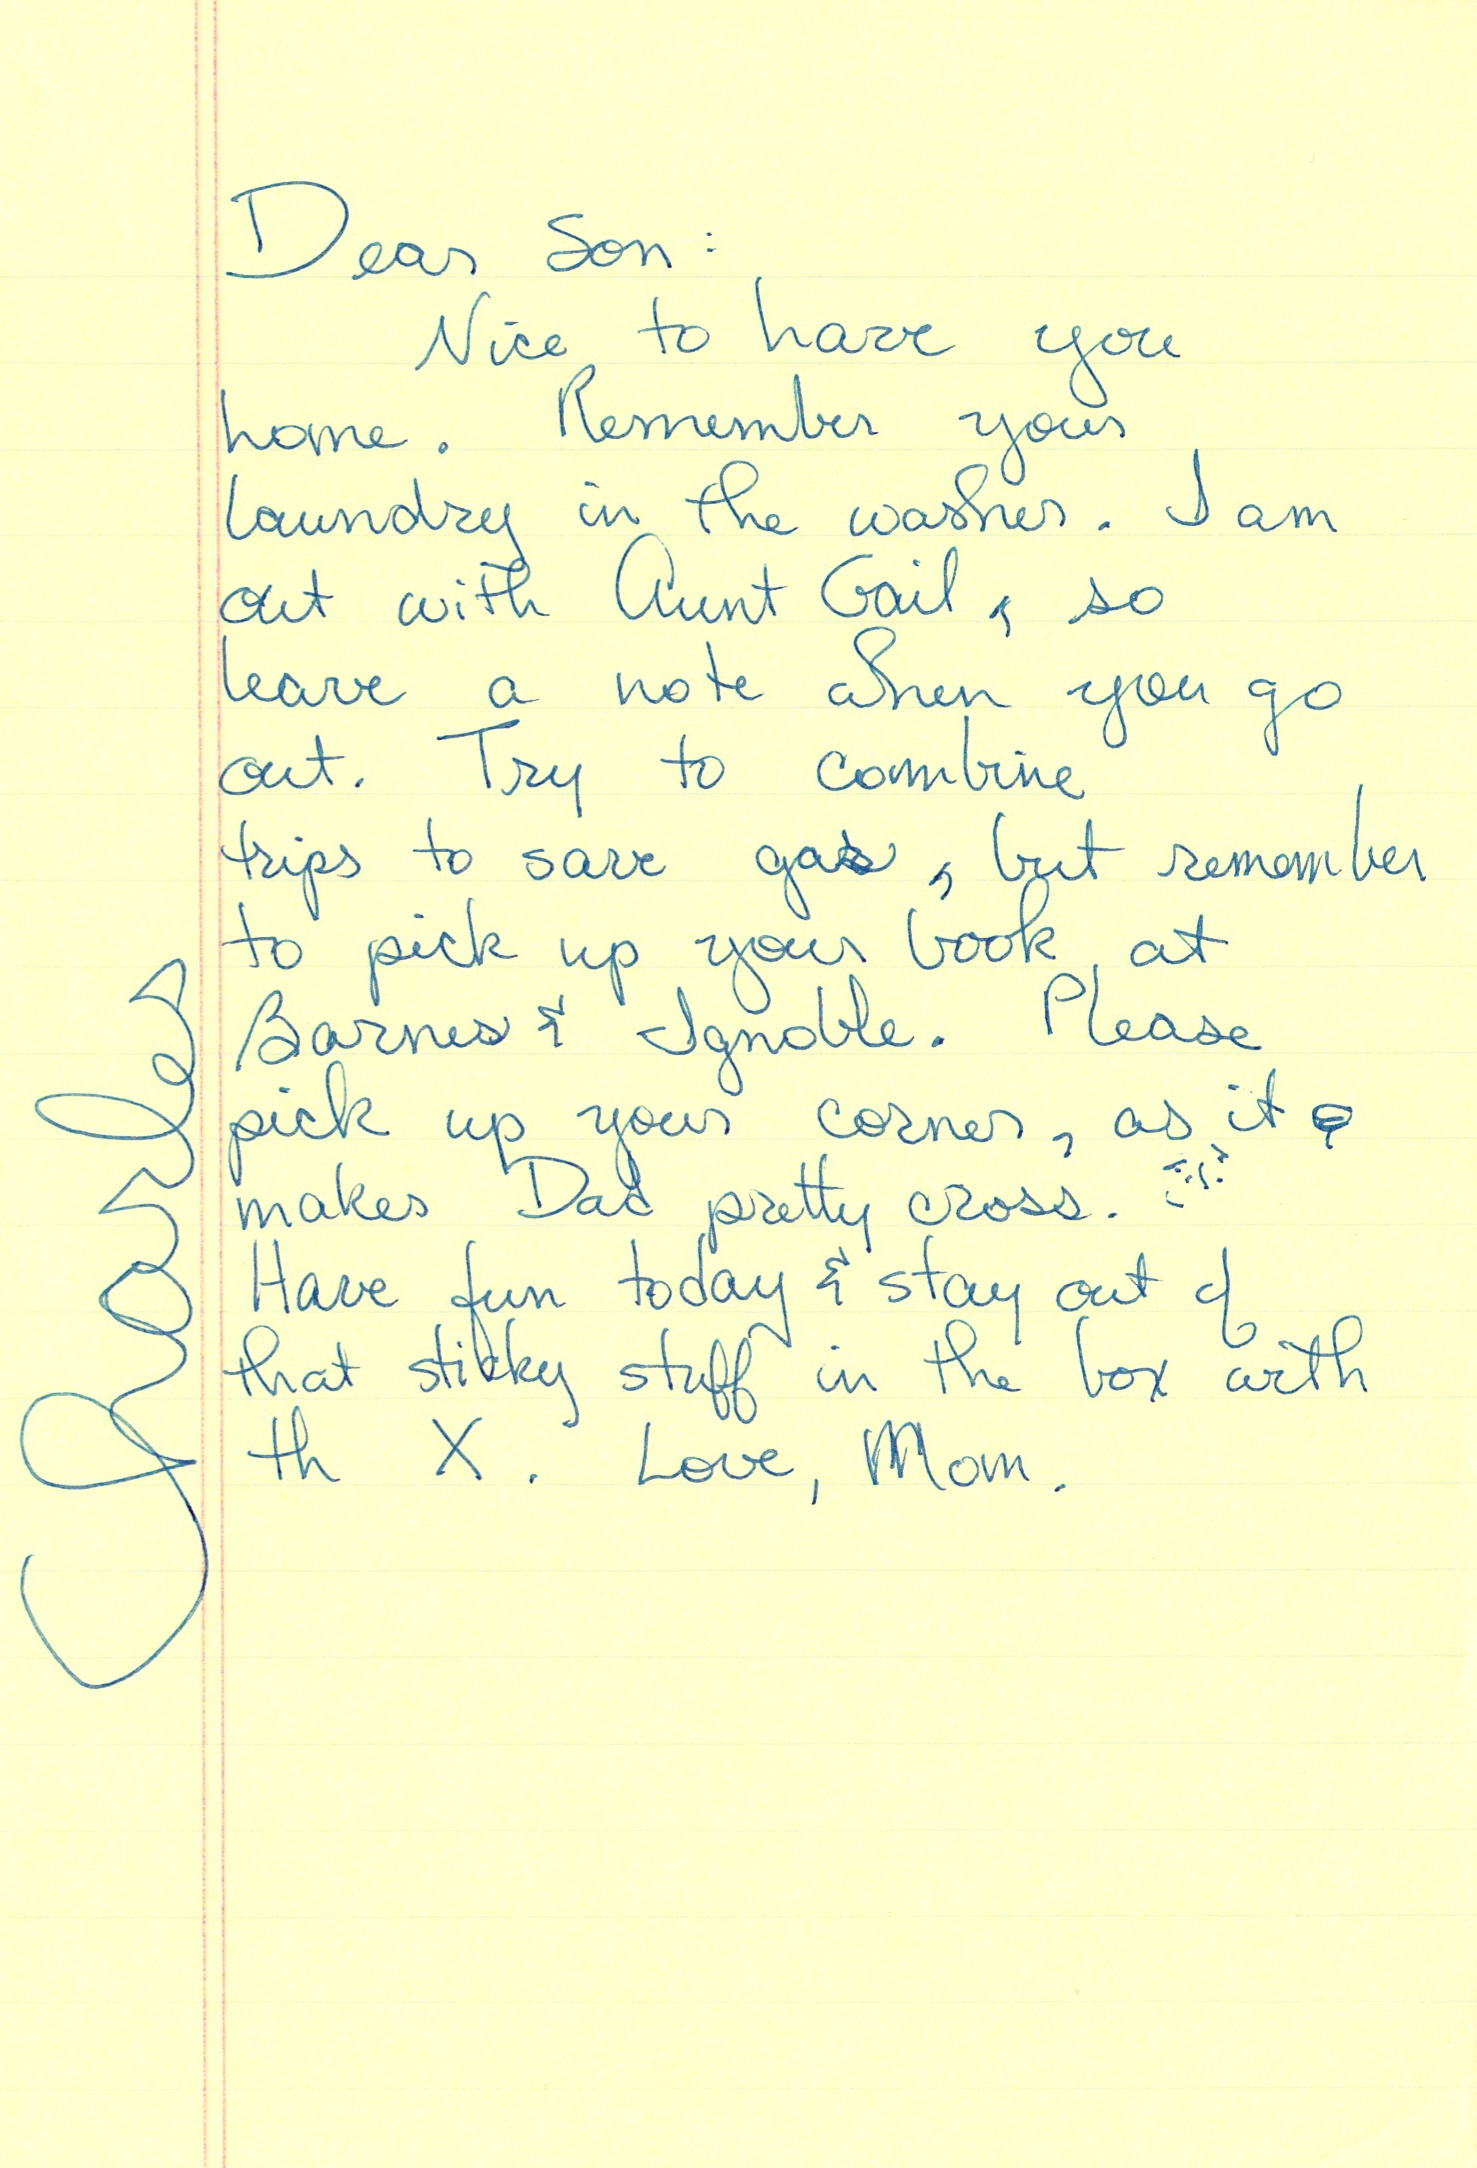 Dear Son:
Nice to have you
home. Remember your
laundry in the washer. I am
out with Aunt Gail, so
leave a note when you go
out. Try to combine
trips to save gas, but remember
to pick up your book at
Barnes & Ignoble. Please
pick up your corner, as it
makes Dad pretty cross.
Have fun today & stay out of
that sticky stuff in the box with
th X. Love, Mom.
Charles